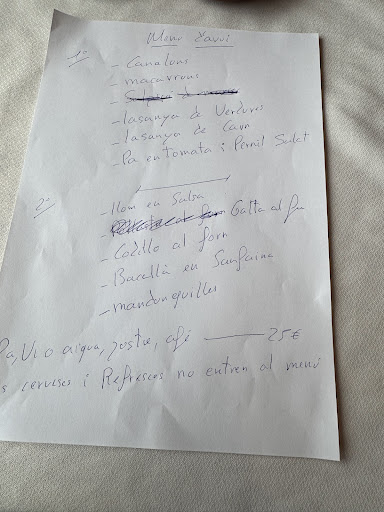 Menu d'avui
1º
- Canalons
- macarrons
- lasanya de Verdures
- lasanya de Carn
- Pa en tomata i Pernil Salat
2º
- llom en Salsa
- Galta al forn
- Codillo al forn
- Bacallà en Sanfaina
- mandonguilles
Pa, Vi o aigua, postre, cafè — 25€
cerveses i Refrescos no entren al menú